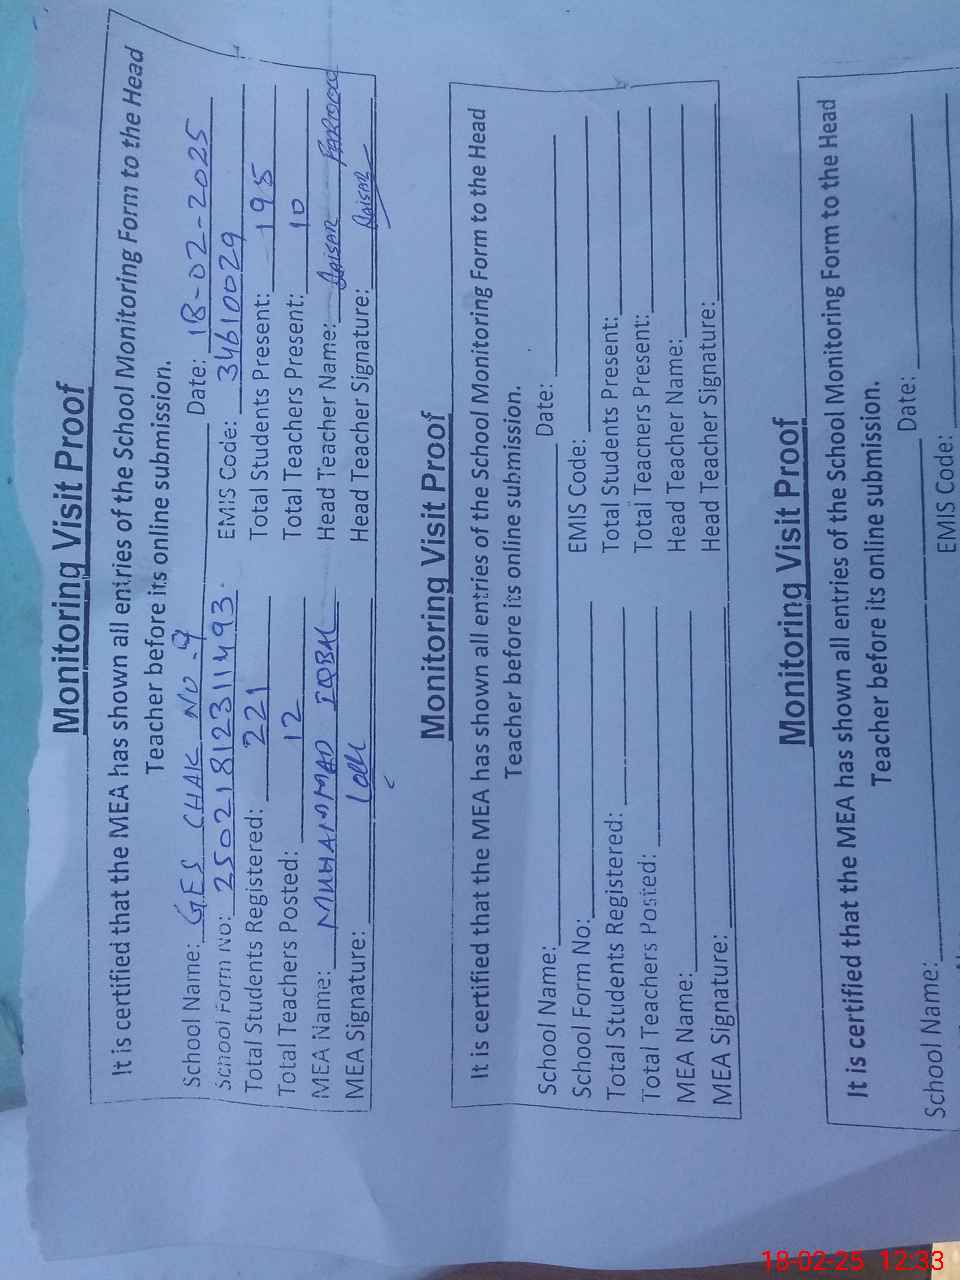 Monitoring Visit Proof
It is certified that the MEA has shown all entries of the School Monitoring Form to the Head
Teacher before its online submission.
School Name: GES CHAK NO.9 Date: 18-02-2025
School Form No: 25021812311493 EMIS Code: 34610029
Total Students Registered: 221 Total Students Present: 195
Total Teachers Posted: 12 Total Teachers Present: 10
MEA Name: MUHAMMAD IQBAL Head Teacher Name: Qaisar Farooq
MEA Signature: Head Teacher Signature: Qaisar
Monitoring Visit Proof
It is certified that the MEA has shown all entries of the School Monitoring Form to the Head
Teacher before its online submission.
School Name: Date:
School Form No: EMIS Code:
Total Students Registered: Total Students Present:
Total Teachers Posted: Total Teachers Present:
MEA Name: Head Teacher Name:
MEA Signature: Head Teacher Signature:
Monitoring Visit Proof
It is certified that the MEA has shown all entries of the School Monitoring Form to the Head
Teacher before its online submission.
School Name: Date:
EMIS Code:
18-02-25 12:33